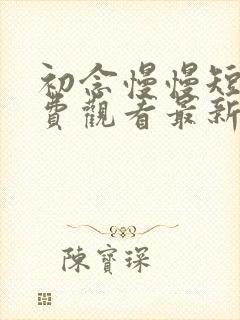 初念慢慢短
費觀看最新
陳寶琛